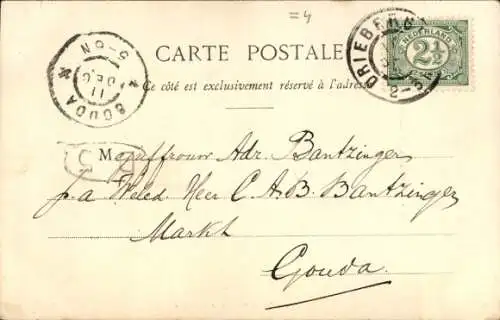 =4
CARTE POSTALE
DRIEBERG
NEDERLAND
2½
2-3
5-6N
11
DEC
GOUDA
Ce côté est exclusivement réservé à l'adresse
Mejuffrouw Adr. Bantzinger
p.a Weled. Heer C. A. B. Bantzinger
Markt
Gouda.